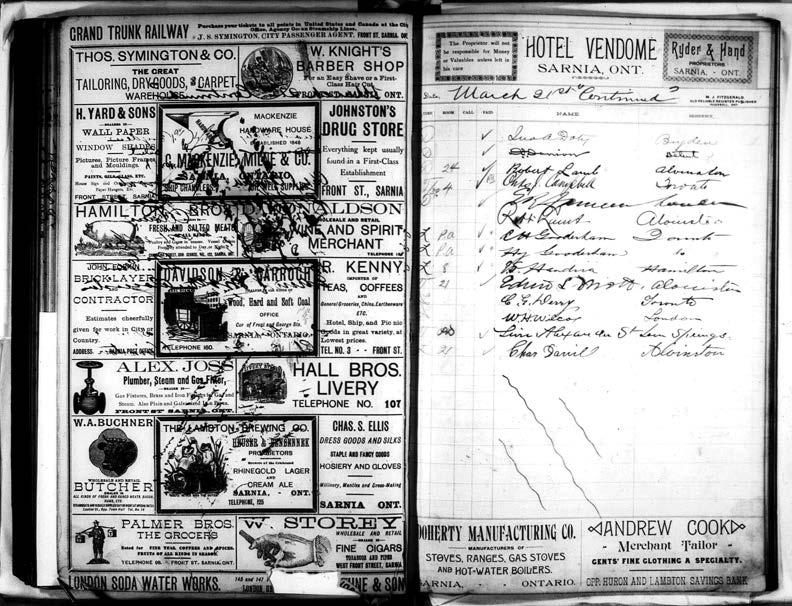 GRAND TRUNK RAILWAY
Purchase your tickets to all points in United States and Canada at the City
Office, Agency Ocean Steamship Lines.
J. S. SYMINGTON, CITY PASSENGER AGENT, FRONT ST. SARNIA, ONT.
THOS. SYMINGTON & CO.
THE GREAT
TAILORING, DRY GOODS, & CARPET
WAREHOUSE
W. KNIGHT'S
BARBER SHOP
For an Easy Shave or a First-
Class Hair Cut
FRONT ST. SARNIA, ONT.
H. YARD & SONS
DEALERS IN
WALL PAPER
WINDOW SHADES
Pictures, Picture Frames
and Mouldings.
PAINTS, OILS, GLASS, ETC.
FRONT STREET, SARNIA
MACKENZIE
HARDWARE HOUSE
ESTABLISHED 1848
C. MACKENZIE, MILNE & CO.
SARNIA ONTARIO
SHIP CHANDLERS
OIL WELL SUPPLIES
JOHNSTON'S
DRUG STORE
Everything kept usually
found in a First-Class
Establishment
FRONT ST., SARNIA
HAMILTON BROS
FRESH AND SALTED MEATS
DONALDSON
WHOLESALE AND RETAIL
WINE AND SPIRIT
MERCHANT
JOHN
BRICK-LAYER
AND
CONTRACTOR
Estimates cheerfully
given for work in City or
Country.
ADDRESS. - SARNIA POST OFFICE
DAVIDSON & BARROCH
Wood, Hard and Soft Coal
OFFICE
Cor of Front and George Sts.
SARNIA - ONTARIO.
TELEPHONE 160.
R. KENNY
IMPORTER OF
TEAS, COFFEES
AND
General Groceries, China, Earthenware
ETC.
Hotel, Ship, and Pic nic
Goods in great variety, at
Lowest prices.
TEL. NO. 3 -- FRONT ST.
ALEX. JOSS
Plumber, Steam and Gas Fitter,
DEALER IN
Gas Fixtures, Brass and Iron Fittings for Gas and
Steam. Also Plain and Galvanized Iron Pipes.
FRONT ST SARNIA, ONT.
HALL BROS.
LIVERY
TELEPHONE NO. 107
W. A. BUCHNER
WHOLESALE AND RETAIL
BUTCHER
DEALER IN
ALL KINDS OF FRESH AND CURED MEATS
THE LAMBTON BREWING CO.
PROPRIETORS
Brewers of the Celebrated
RHINEGOLD LAGER
AND
CREAM ALE
SARNIA, - ONT.
TELEPHONE, 125
CHAS. S. ELLIS
DRESS GOODS AND SILKS
STAPLE AND FANCY GOODS
HOSIERY AND GLOVES
Millinery, Mantles and Dress-Making
SARNIA ONT.
PALMER BROS.
THE GROCERS
Noted for FINE TEAS, COFFEES AND SPICES.
FRUITS OF ALL KINDS IN SEASON.
TELEPHONE 98. - FRONT ST. SARNIA, ONT.
W. STOREY
WHOLESALE AND RETAIL
DEALER IN
FINE CIGARS
TOBACCOS AND PIPES
WEST FRONT STREET, SARNIA
LONDON SODA WATER WORKS.
145 and 147
& SON
The Proprietor will not
be responsible for Money
or Valuables unless left in
his care
HOTEL VENDOME
SARNIA, ONT.
Ryder & Hand
PROPRIETORS
SARNIA, - ONT.
M. J. FITZGERALD
OLD RELIABLE REGISTER PUBLISHER
Date March 21st "Continued"
TIME ROOM CALL PAID NAME RESIDENCE
Doty Brigden
24 Robert Lamb Alvinston
4 Campbell Toronto
Alvinston
Pa Gooderham Toronto
Pa Hy Gooderham to
8 Hendrie Hamilton
21 Edwin S. Mott Alvinston
C. G. Derry Toronto
W. H. Wilcox London
Alexander St Springs.
21 Chas Alvinston
DOHERTY MANUFACTURING CO.
MANUFACTURERS OF
STOVES, RANGES, GAS STOVES
AND HOT-WATER BOILERS.
SARNIA, - ONTARIO.
ANDREW COOK
Merchant Tailor
GENTS' FINE CLOTHING A SPECIALTY.
OPP. HURON AND LAMBTON SAVINGS BANK